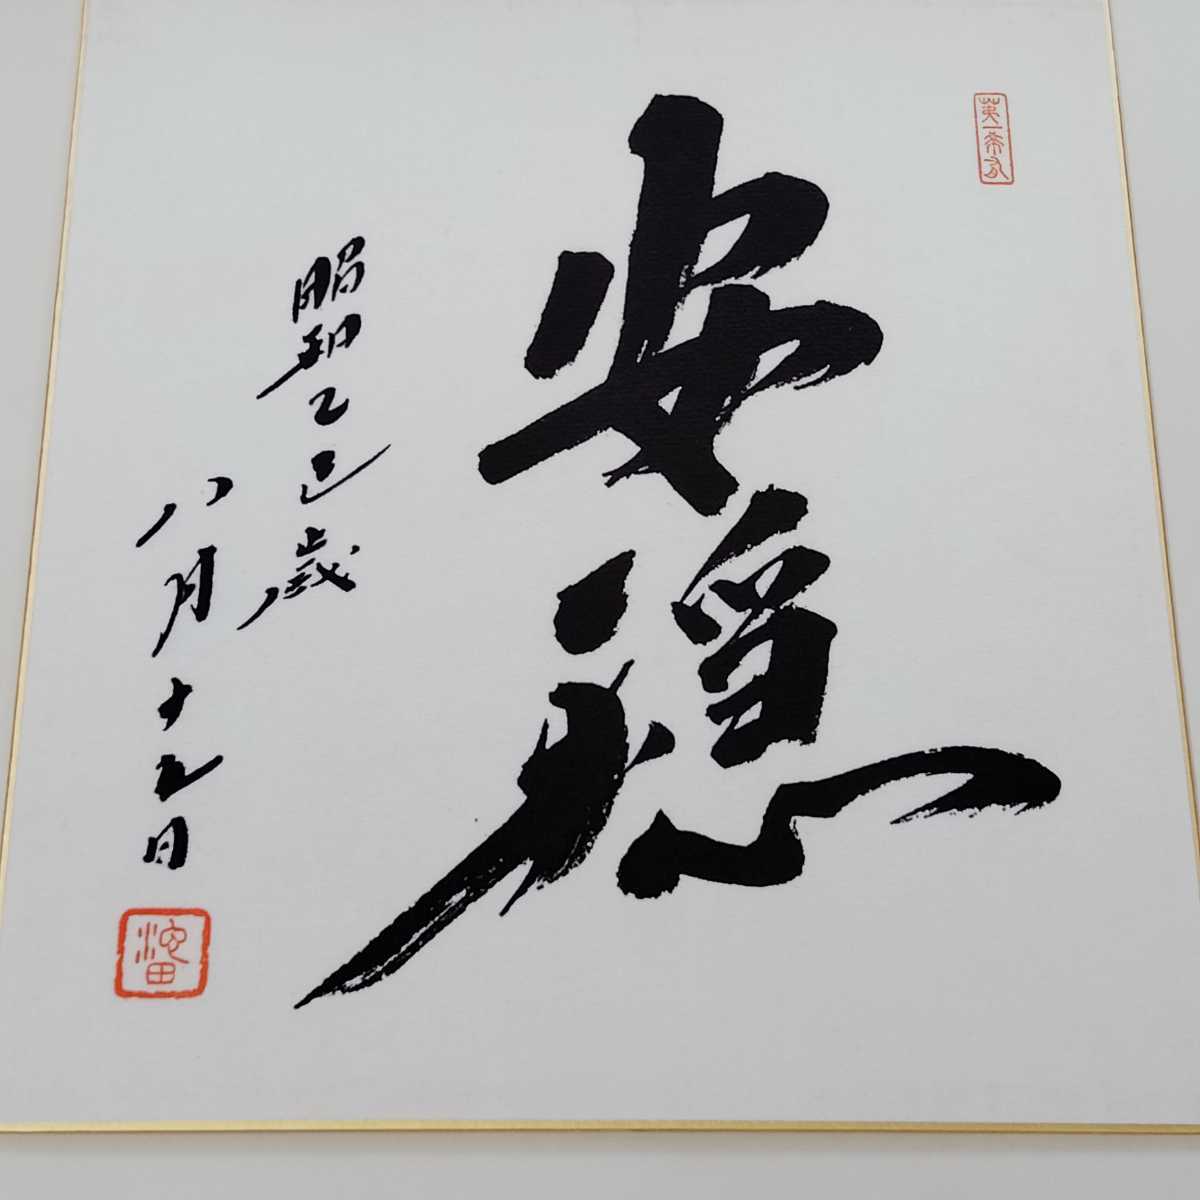 安穏
昭和乙巳歳
八月十九日
池田